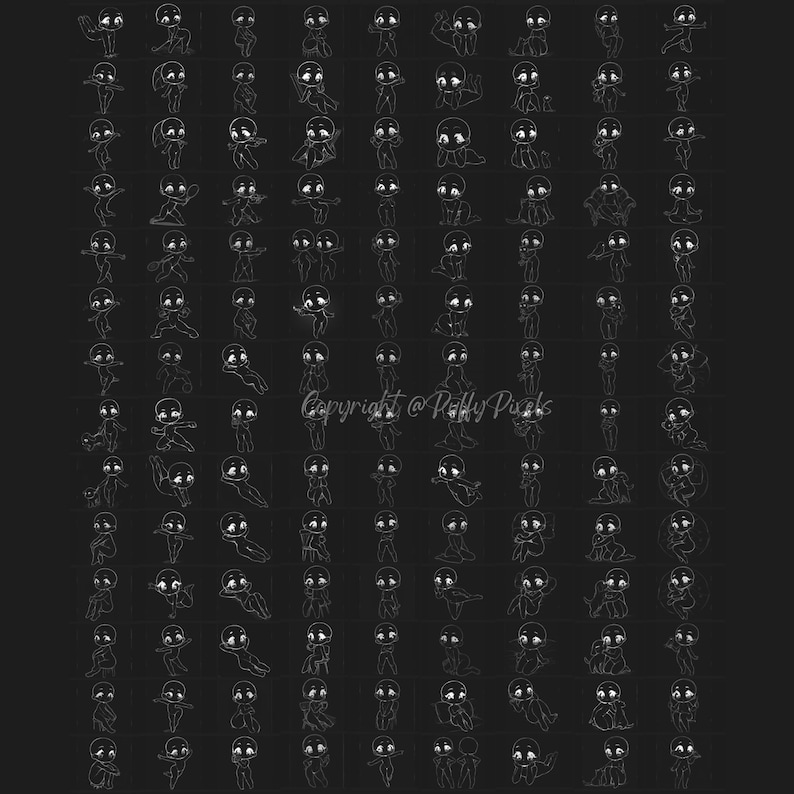 Copyright @PuffyPixels